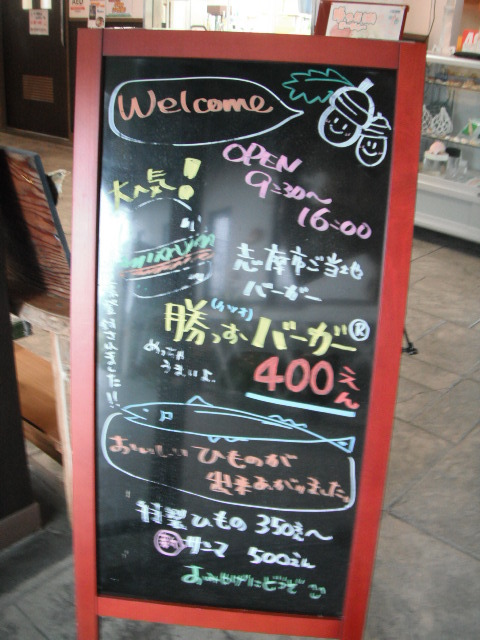 Welcome
OPEN
9:30～
16:00
大人気!
志摩市ご当地
バーガー
(カツオ)
バーガー®
めっちゃ
うまいよ。
400えん
されました!!
おいしい ひものが
出来あがりました。
特製ひもの 350えん～
サンマ 500えん
おみやげにどうぞ